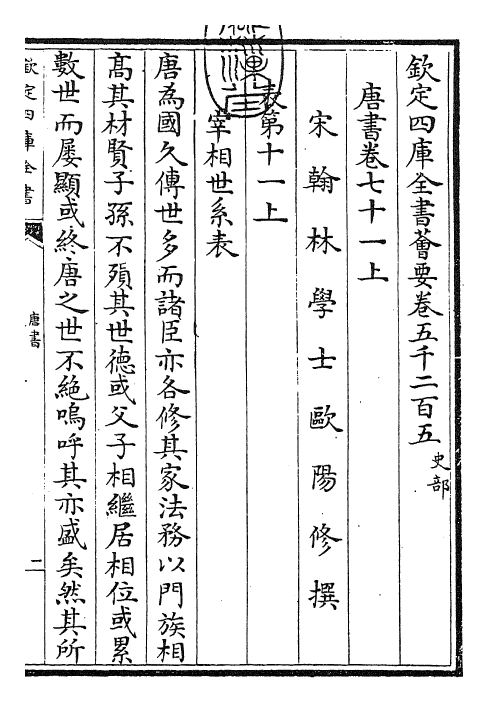 欽定四庫全書薈要卷五千二百五 史部
唐書卷七十一上
宋翰林學士歐陽修撰
表第十一上
宰相世系表
唐為國久傳世多而諸臣亦各修其家法務以門族相
髙其材賢子孫不殞其世德或父子相繼居相位或累
數世而屢顯或終唐之世不絶嗚呼其亦盛矣然其所
欽定四庫全書
唐書
二